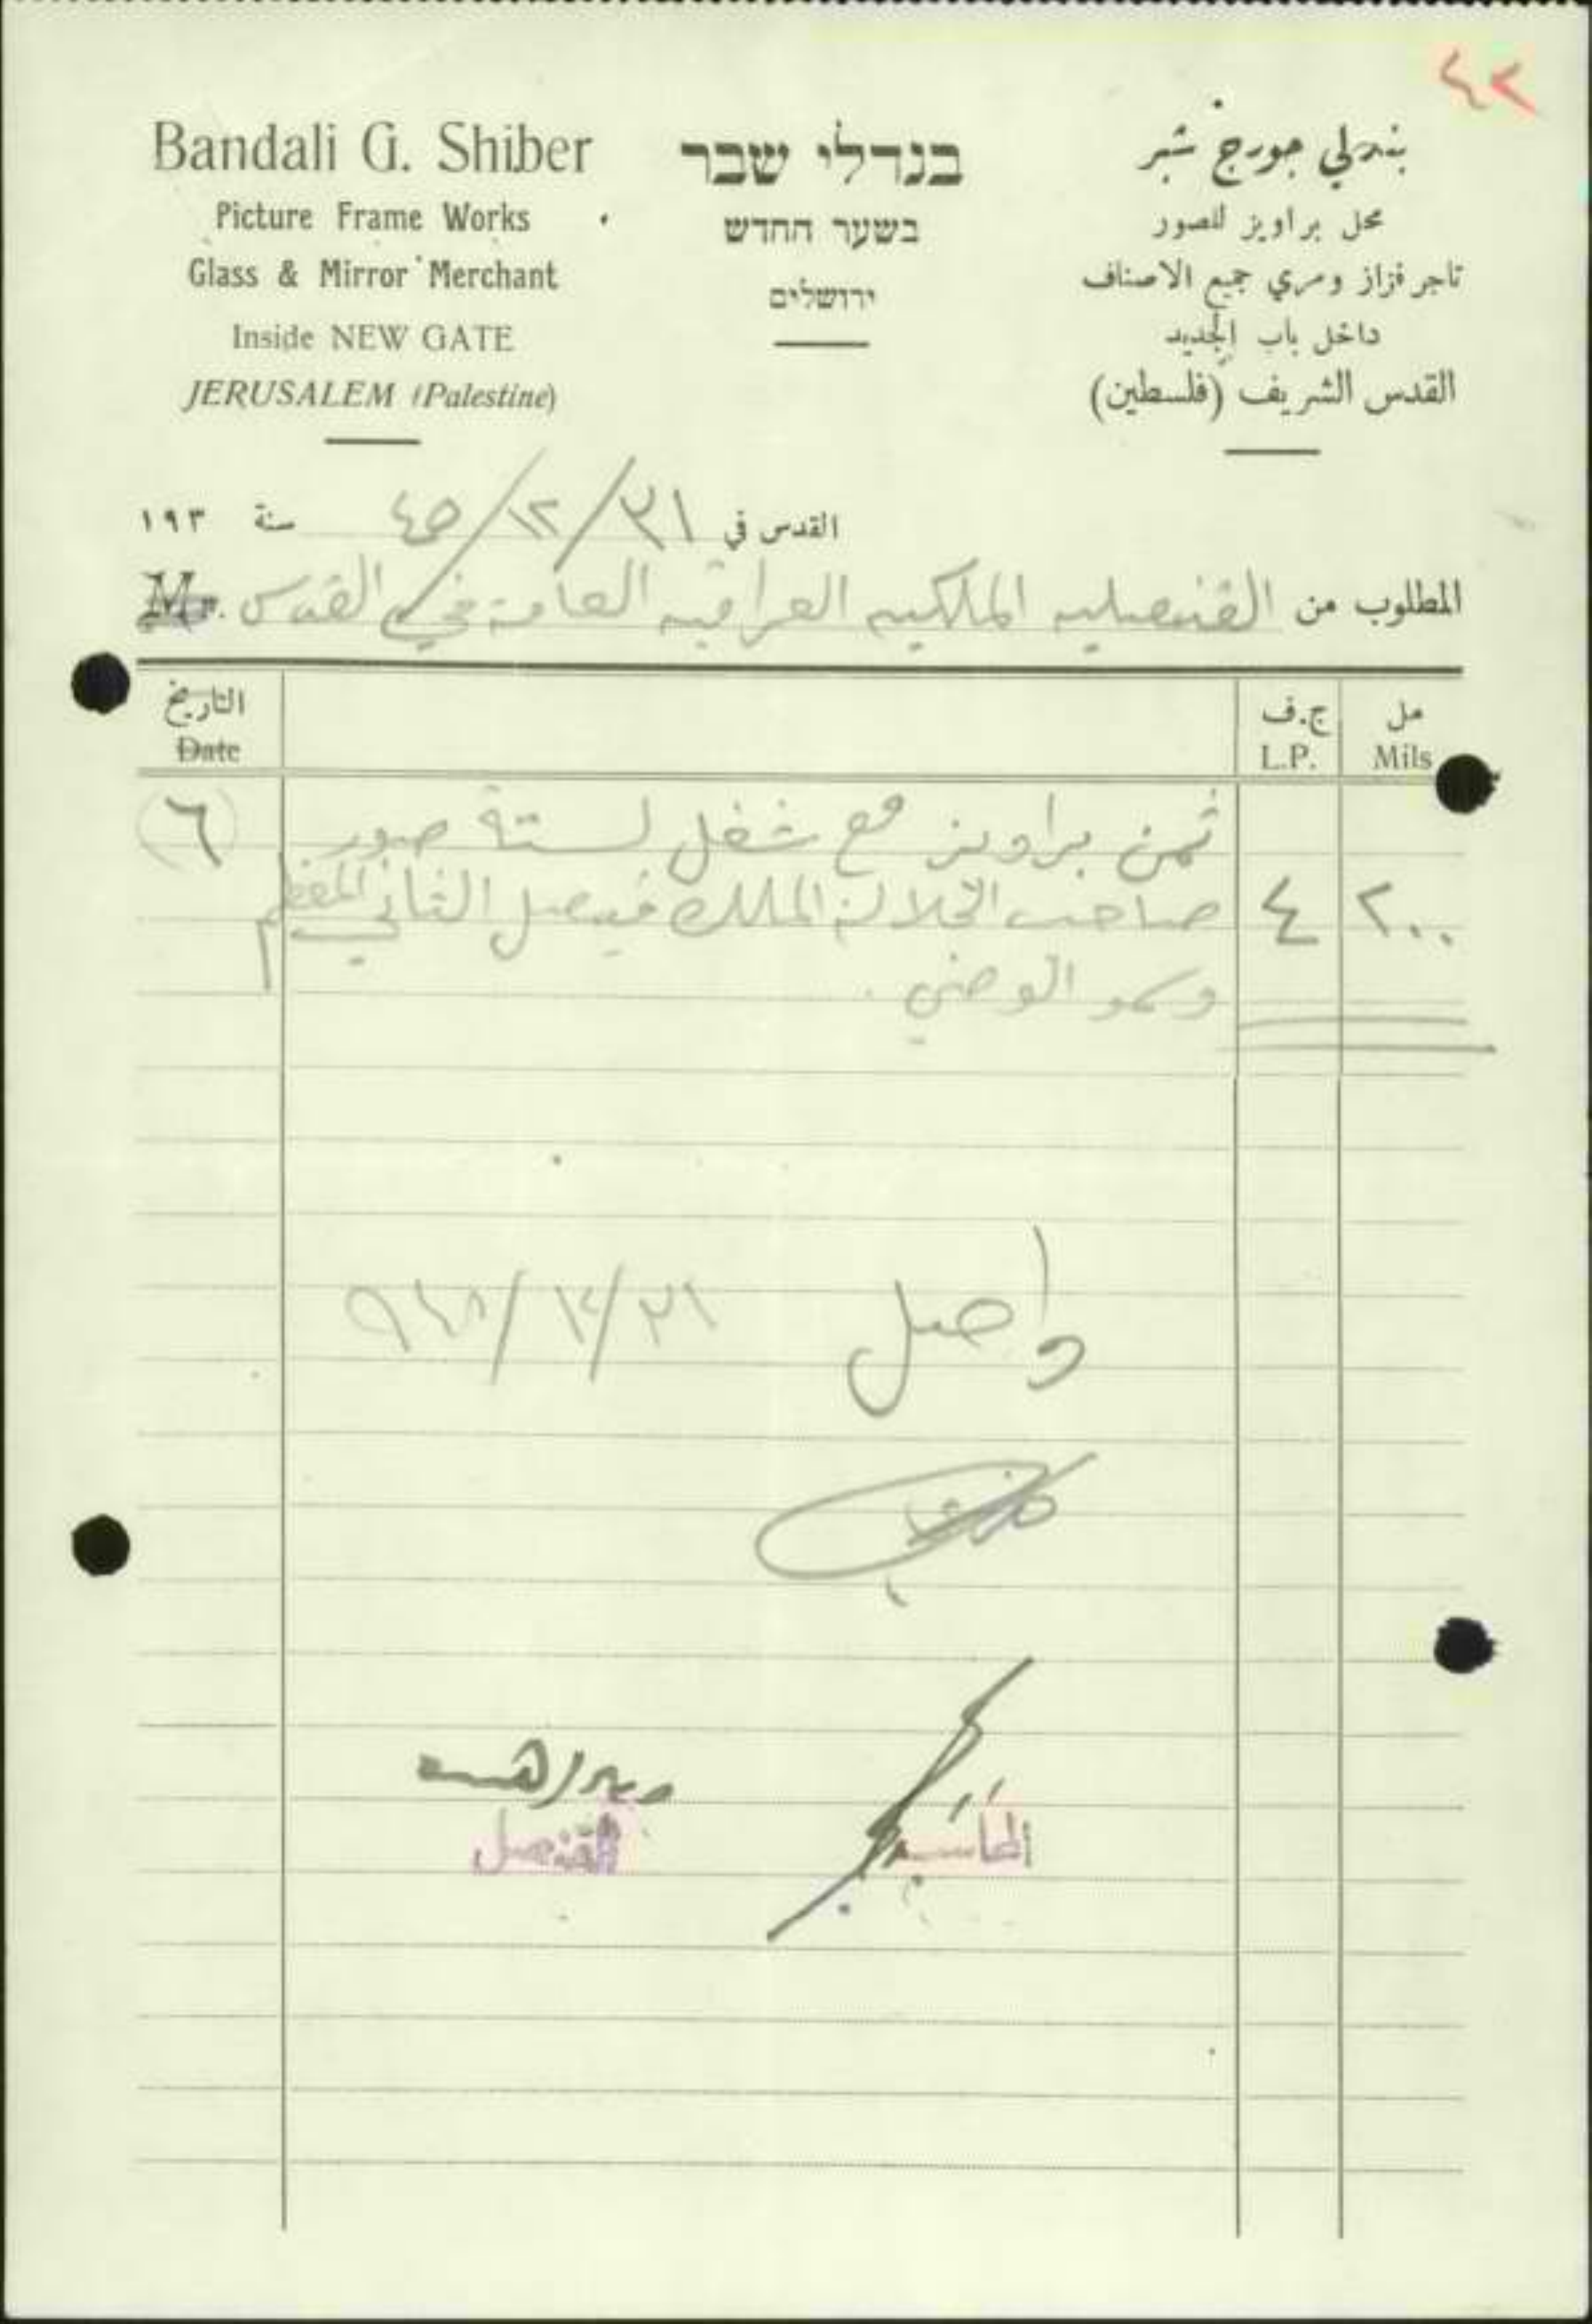 ٤٢
Bandali G. Shiber
Picture Frame Works
Glass & Mirror Merchant
Inside NEW GATE
JERUSALEM (Palestine)
בנדלי שבר
בשער החדש
ירושלים
بندلي جورج شبر
محل براويز للصور
تاجر قزاز ومري جميع الاصناف
داخل باب الجديد
القدس الشريف (فلسطين)
القدس في ٣١/١٢/٤٥ سنة ١٩٣
المطلوب من القنصليه الملكيه العراقيه العامة في القدس .Mr
التاريخ ج.ف مل
Date L.P. Mils
(٦) ثمن براويز مع شغل لستة صور
صاحب الجلالة الملك فيصل الثاني المعظم ٤ ٢٠٠
وسمو الوصي .
واصل ٣١/١٢/
المحاسب
القنصل